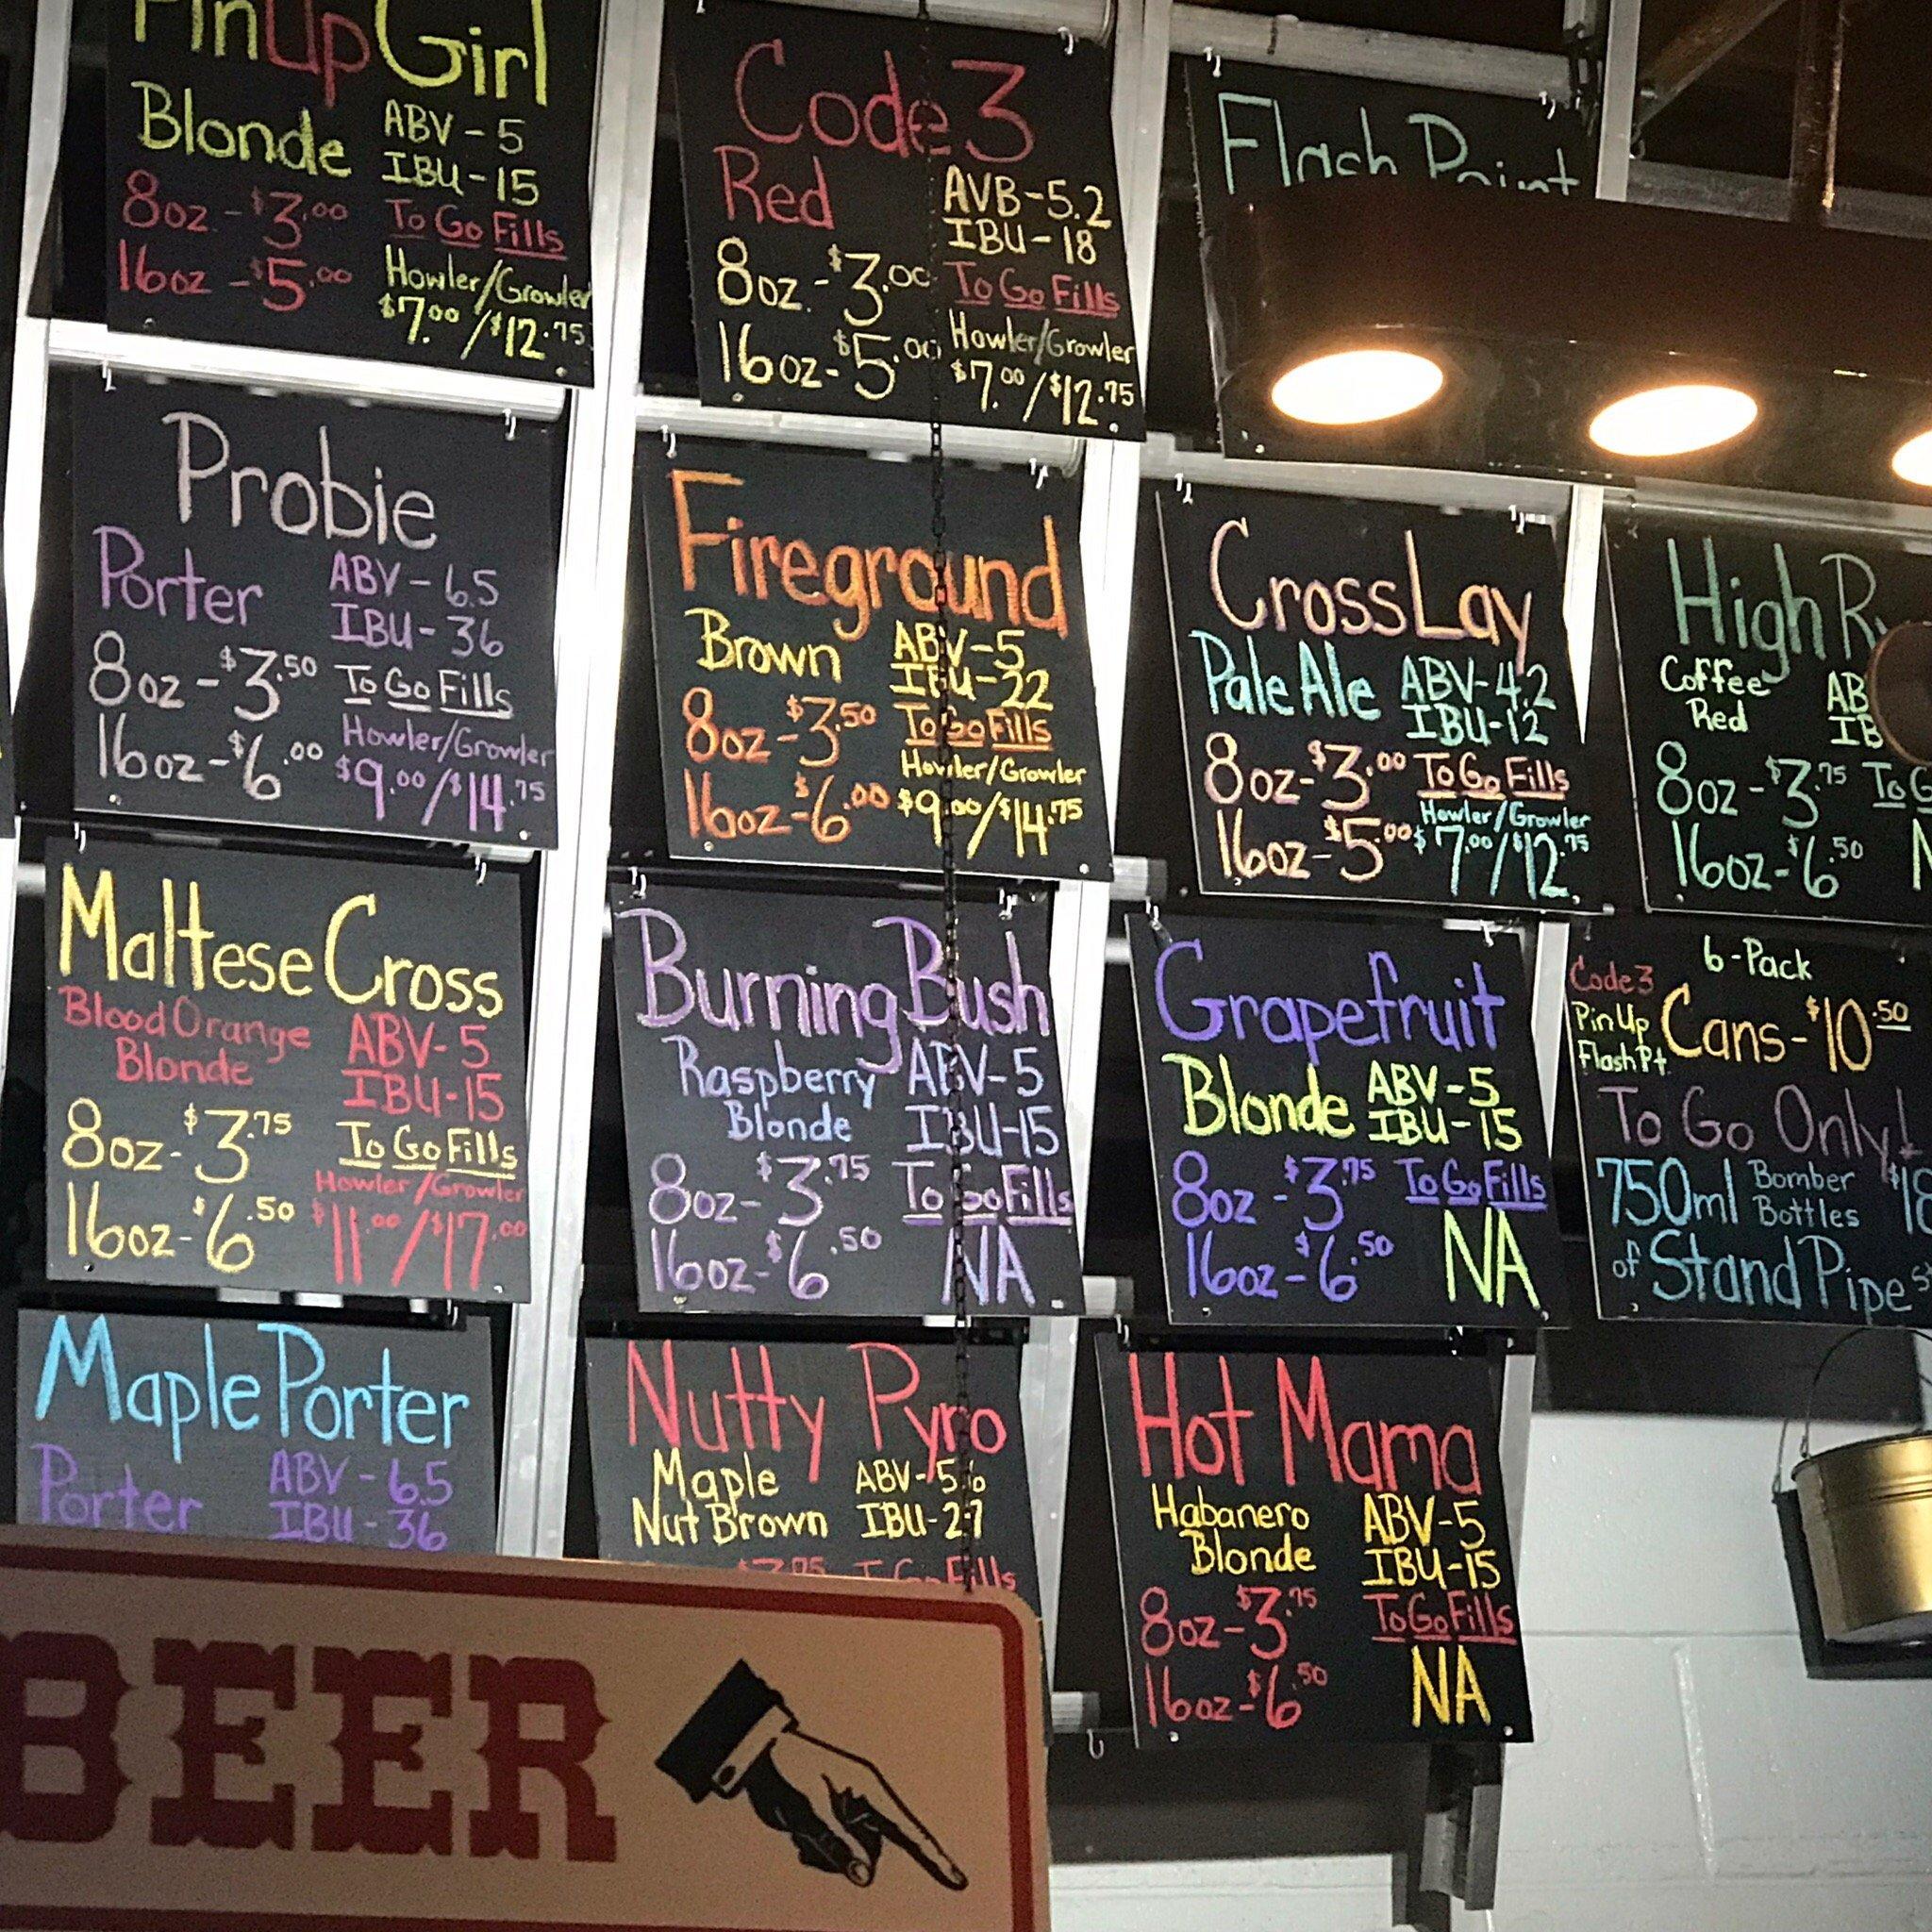 PinUp Girl
Blonde ABV-5
IBU-15
8oz-$3.00 To Go Fills
16oz-$5.00 Howler/Growler
$7.00/$12.75
Code 3
Red AVB-5.2
IBU-18
8oz-$3.00 To Go Fills
16oz-$5.00 Howler/Growler
$7.00/$12.75
Flash Point
Probie
Porter ABV-6.5
IBU-36
8oz-$3.50 To Go Fills
16oz-$6.00 Howler/Growler
$9.00/$14.75
Fireground
Brown ABV-5
IBU-22
8oz-$3.50 To Go Fills
Howler/Growler
16oz-$6.00 $9.00/$14.75
CrossLay
Pale Ale ABV-4.2
IBU-12
8oz-$3.00 To Go Fills
Howler/Growler
16oz-$5.00 $7.00/$12.75
High
Coffee
Red
8oz-$3.75 To
16oz-$6.50
Maltese Cross
Blood Orange ABV-5
Blonde IBU-15
8oz-$3.75 To Go Fills
Howler/Growler
16oz-$6.50 $11.00/$17.00
Burning Bush
Raspberry ABV-5
Blonde IBU-15
8oz-$3.75 To Go Fills
16oz-$6.50 NA
Grapefruit
Blonde ABV-5
IBU-15
8oz-$3.75 To Go Fills
16oz-$6.50 NA
6-Pack
Code 3
Pin Up Cans-$10.50
Flash Pt.
To Go Only!
750ml Bomber
Bottles
of Stand Pipe
Maple Porter
Porter ABV-6.5
IBU-36
Nutty Pyro
Maple ABV-5.6
Nut Brown IBU-27
$3.75 To Go Fills
Hot Mama
Habanero ABV-5
Blonde IBU-15
8oz-$3.75 To Go Fills
16oz-$6.50 NA
BEER